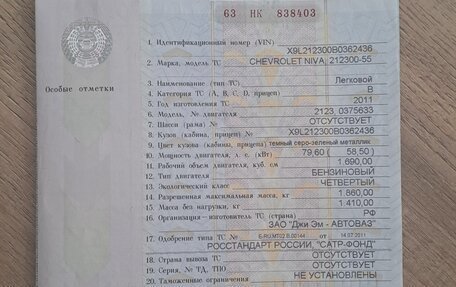 63 НК 838403
1. Идентификационный номер (VIN) X9L212300B0362436
2. Марка, модель ТС CHEVROLET NIVA, 212300-55
Особые отметки
3. Наименование (тип ТС) Легковой
4. Категория ТС (A, B, C, D, прицеп) B
5. Год изготовления ТС 2011
6. Модель, № двигателя 2123, 0375633
7. Шасси (рама) № ОТСУТСТВУЕТ
8. Кузов (кабина, прицеп) № X9L212300B0362436
9. Цвет кузова (кабины, прицепа) темный серо-зеленый металлик
10. Мощность двигателя, л. с. (кВт) 79,60 ( 58,50 )
11. Рабочий объем двигателя, куб. см 1 690,00
12. Тип двигателя БЕНЗИНОВЫЙ
13. Экологический класс ЧЕТВЕРТЫЙ
14. Разрешенная максимальная масса, кг 1 860,00
15. Масса без нагрузки, кг 1 410,00
16. Организация – изготовитель ТС (страна) РФ
ЗАО "Джи Эм - АВТОВАЗ"
17. Одобрение типа ТС № E-RU.MT02.B.00144 от 14.07.2011
РОССТАНДАРТ РОССИИ, "САТР-ФОНД"
18. Страна вывоза ТС ОТСУТСТВУЕТ
19. Серия, № ТД, ТПО ОТСУТСТВУЕТ
20. Таможенные ограничения НЕ УСТАНОВЛЕНЫ